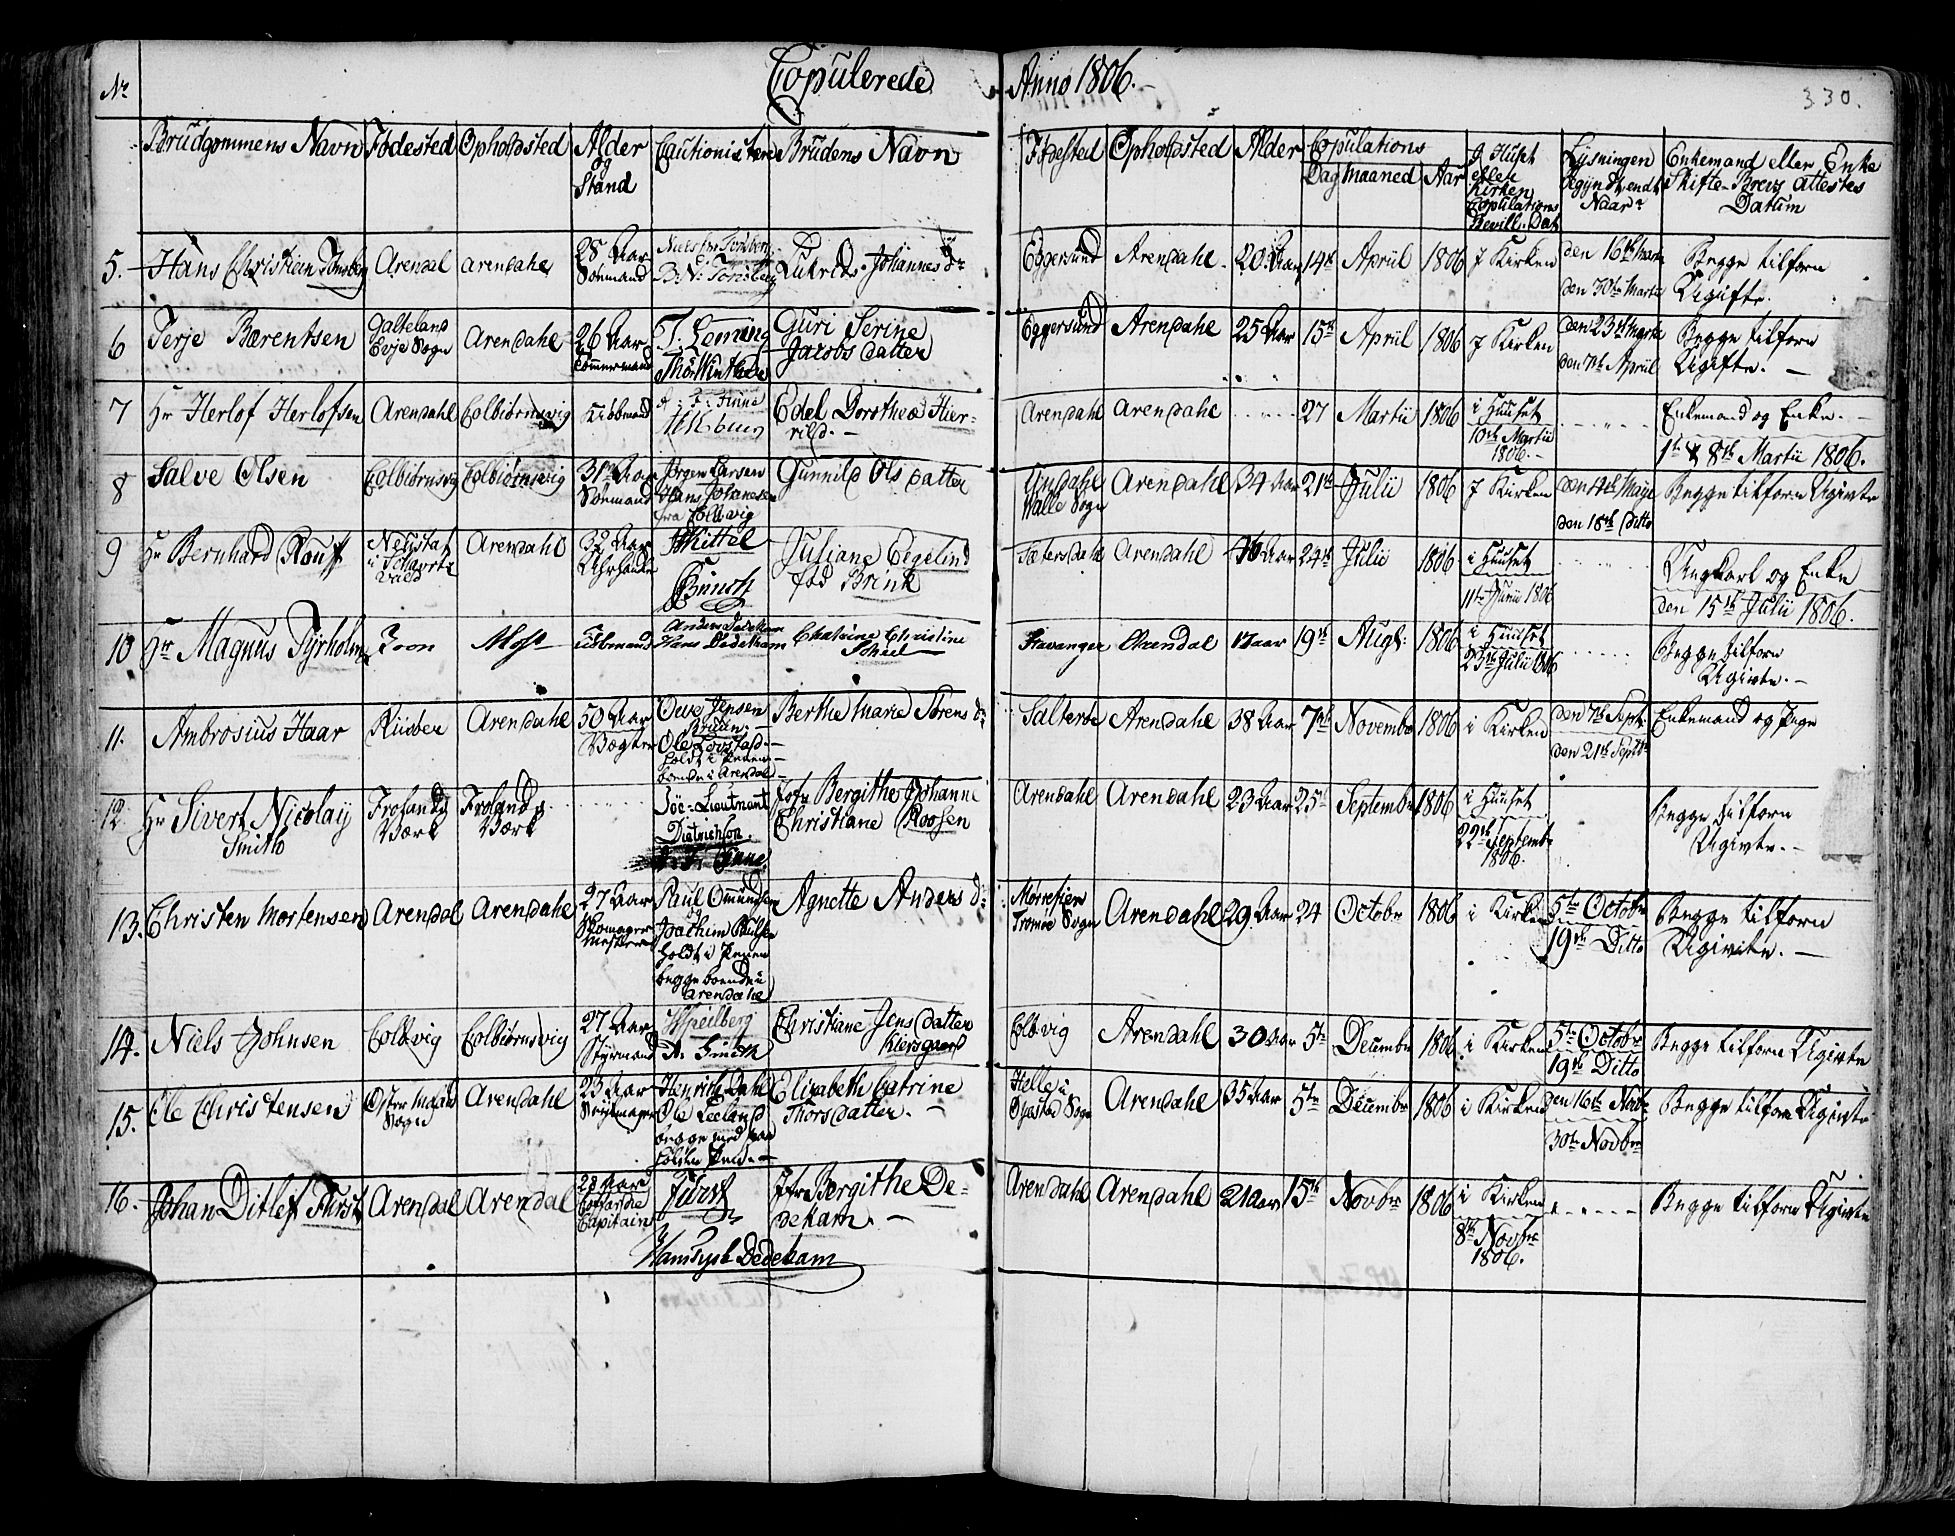 No
Copulerede Anno 1806.
330.
Brudgommens Navn Fødested Opholdsted Alder og Stand Cautionistere Brudens Navn Fødested Opholdsted Alder Copulations Dag Maaned Aar J Huset eller Kirken Copulations Bevill: Dat Lysningen begyndt, endt Naar Enkemand eller Enke Skifte-Brevs Attestes Datum
5. Hans Christian Tønsberg Arendal Arendahl 28 Aar Sømand Niels Tønsberg B: N: Tønsberg Johannes Dr Eggersund Arendahl 20 Aar 14de April 1806 J Kirken den 16de Martii den 30te Martii Begge tilforn Ugifte.
6 Terje Bærentsen Galteland Evje Sogn Arendahl 26 Aar Tømmermand T. Leming Guri Serine Jacobs Datter Eggersund Arendahl 25 Aar 15de April 1806 J Kirken den 23de Martii den 7de April Begge tilforn Ugifte.
7 Hr Herlof Herlofsen Arendahl Colbiörnsvig Edel Dorothea Hierrild. Arendahl Arendahl 27 Martii 1806 i Huuset 10de Martii 1806. Enkemand og Enke. 1te & 8de Martii 1806.
8 Salve Olsen Colbiörnsvig Colbiörnsvig 31 Aar Sømand Jørgen Larsen Hans Johanesen fra Colbvig Gunnild Ols Datter Halle Sogn Arendahl 34 Aar 21de Julii 1806 J Kirken den 4de Maye den 18de Ditto Begge tilforn Ugivte
9 Hr Bernhard Rouff Neustat i Arendahl 32 Aar Kittel Juliane Eegelind fød Brink Sætersdahl Arendahl 46 Aar 24de Julii 1806 i Huuset 11te Junii 1806 Ungkarl og Enke den 15de Julii 1806.
10 Hr Magnus Tyrholm Anders Dedekam Hans Dedekam Chatrine Christine Scheel Stavanger Arendal 17 aar 19de Augl: 1806 i Huuset 23de Julii 06 Begge tilforn Ugivte.
11. Ambrosius Haar Riisøer Arendahl 50 Aar Vægter Ouve Jensen Bruun Ole Løvstad holdt i Pennen boende i Arendal Berthe Marie Sørens Dr Salterøe Arendahl 38 Aar 7de Novembr 1806 i Kirken den 7de Septr: den 21de Septbr Enkemand og Pige
12. Hr Sivert Nicolaij Smith Frolands Værk Frolands Værk Lieutnant Dietrichson Jofr Bergithe Johanne Christiane Roosen Arendahl Arendahl 23 Aar 25de Septembr 1806 i Huuset 22de Septembr 1806. Begge tilforn Ugivte.
13. Christen Mortensen Arendal Arendahl 27 Aar Skomager Mester Paul Omundsen og Joachim Poulsen holdt i Pennen begge boende i Arendahl Agnette Anders Dr Mørrefien Tromøe Sogn Arendahl 29 Aar 24 Octobr 1806 i Kirken 5te Octobr 19de Ditto Begge tilforn Ugivte.
14. Niels Johnsen Colbvig Colbiörnsvig 27 Aar Styrmand Speilberg A. Smith Christiane Jens Datter Kiersgaard Colbvig Arendahl 30 Aar 5te Decembr 1806 i Kirken 5te Octobr 19de Ditto Begge tilforn Ugivte
15. Ole Christensen Øster Moland Sogn Arendahl 23 Aar Henrich Dahl Ole Leeland begge med paaholden Pen. Elizabeth Catrine Thors Datter. Helle i Øyestad Sogn Arendahl 35 Aar 5te Decembr 1806 i Kirken den 16de Novbr 30te Novbr Begge tilforn Ugivte
16. Johan Ditlef Fürst Arendal Arendal 28 Aar Cofardie Capitain Fürst Hans Tyck Dedekam Jfr Bergithe Dedekam. Arendahl Arendahl 21 Aar 15de Novbr 1806 i Kirken 8de Novbr 1806. Begge tilforn Ugivte